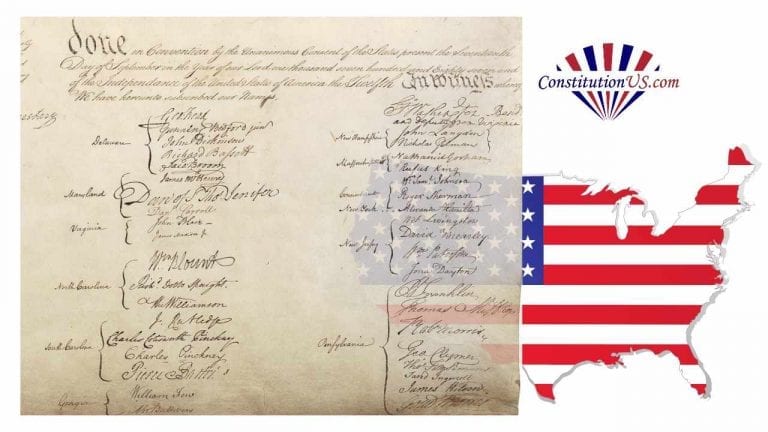 done in Convention by the Unanimous Consent of the States present the Seventeenth
Day of September in the Year of our Lord one thousand seven hundred and Eighty seven and
of the Independance of the United States of America the Twelfth In witness whereof
We have hereunto subscribed our Names,
Delaware
Geo: Read
Gunning Bedford jun
John Dickinson
Richard Bassett
Jaco: Broom
James McHenry
Maryland
Dan of St Thos. Jenifer
Danl Carroll
Virginia
John Blair—
James Madison Jr.
North Carolina
Wm Blount
Richd. Dobbs Spaight.
Hu Williamson
South Carolina
J. Rutledge
Charles Cotesworth Pinckney
Charles Pinckney
Pierce Butler.
Georgia
William Few
Abr Baldwin
Go. Washington
and deputy from Virginia
New Hampshire
John Langdon
Nicholas Gilman
Massachusetts
Nathaniel Gorham
Rufus King
Connecticut
Wm. Saml. Johnson
Roger Sherman
New York
Alexander Hamilton
New Jersey
Wil: Livingston
David Brearley
Wm. Paterson
Jona: Dayton
Pensylvania
B Franklin
Thomas Mifflin
Robt Morris
Geo. Clymer
Thos. FitzSimons
Jared Ingersoll
James Wilson
Gouv Morris
CONSTITUTIONUS.com